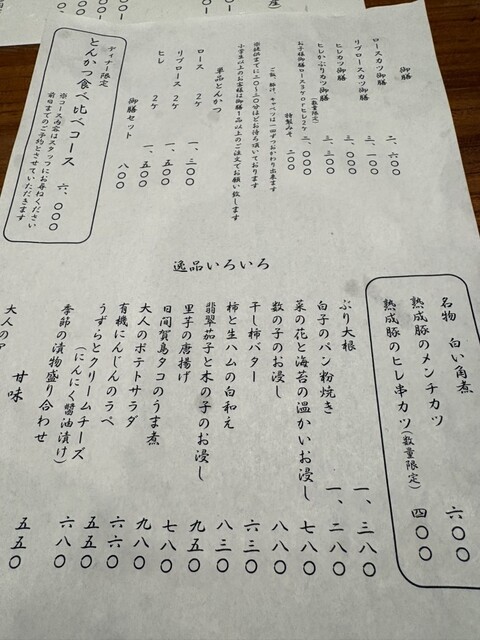 御膳
ロースカツ御膳 二、六〇〇
リブロースカツ御膳 三、一〇〇
ヒレカツ御膳 三、〇〇〇
ヒレかぶりカツ御膳
(数量限定)
お子様御膳ロース3ケorヒレ2ケ
特製みそ 二〇〇
ご飯、豚汁、キャベツは一回ずつおかわり出来ます
※提供までに20〜30分ほどお待ち頂いております
小学生以上のお客様は御膳1品以上のご注文でお願い致します
単品とんかつ
ロース 2ケ 一、三〇〇
リブロース 2ケ 一、五〇〇
ヒレ 2ケ 一、五〇〇
御膳セット 八〇〇
ディナー限定
とんかつ食べ比べコース 六、〇〇〇
※コース内容はスタッフにお尋ねください
前日までのご予約とさせていただきます
名物 白い角煮
熟成豚のメンチカツ 六〇〇
熟成豚のヒレ串カツ(数量限定) 四〇〇
逸品いろいろ
ぶり大根 一、三八〇
白子のパン粉焼き 一、二八〇
菜の花と海苔の温かいお浸し 七八〇
数の子のお浸し 八八〇
干し柿バター 六三〇
柿と生ハムの白和え 八三〇
翡翠茄子と木の子のお浸し 九五〇
里芋の唐揚げ 七八〇
日間賀島タコのうま煮 九八〇
大人のポテトサラダ 六六〇
有機にんじんのラペ 五五〇
うずらとクリームチーズ
(にんにく醤油漬け) 六八〇
季節の漬物盛り合わせ 五五〇
甘味
大人の